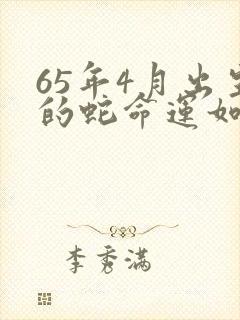 65年4月出生
的蛇命运如
李秀满